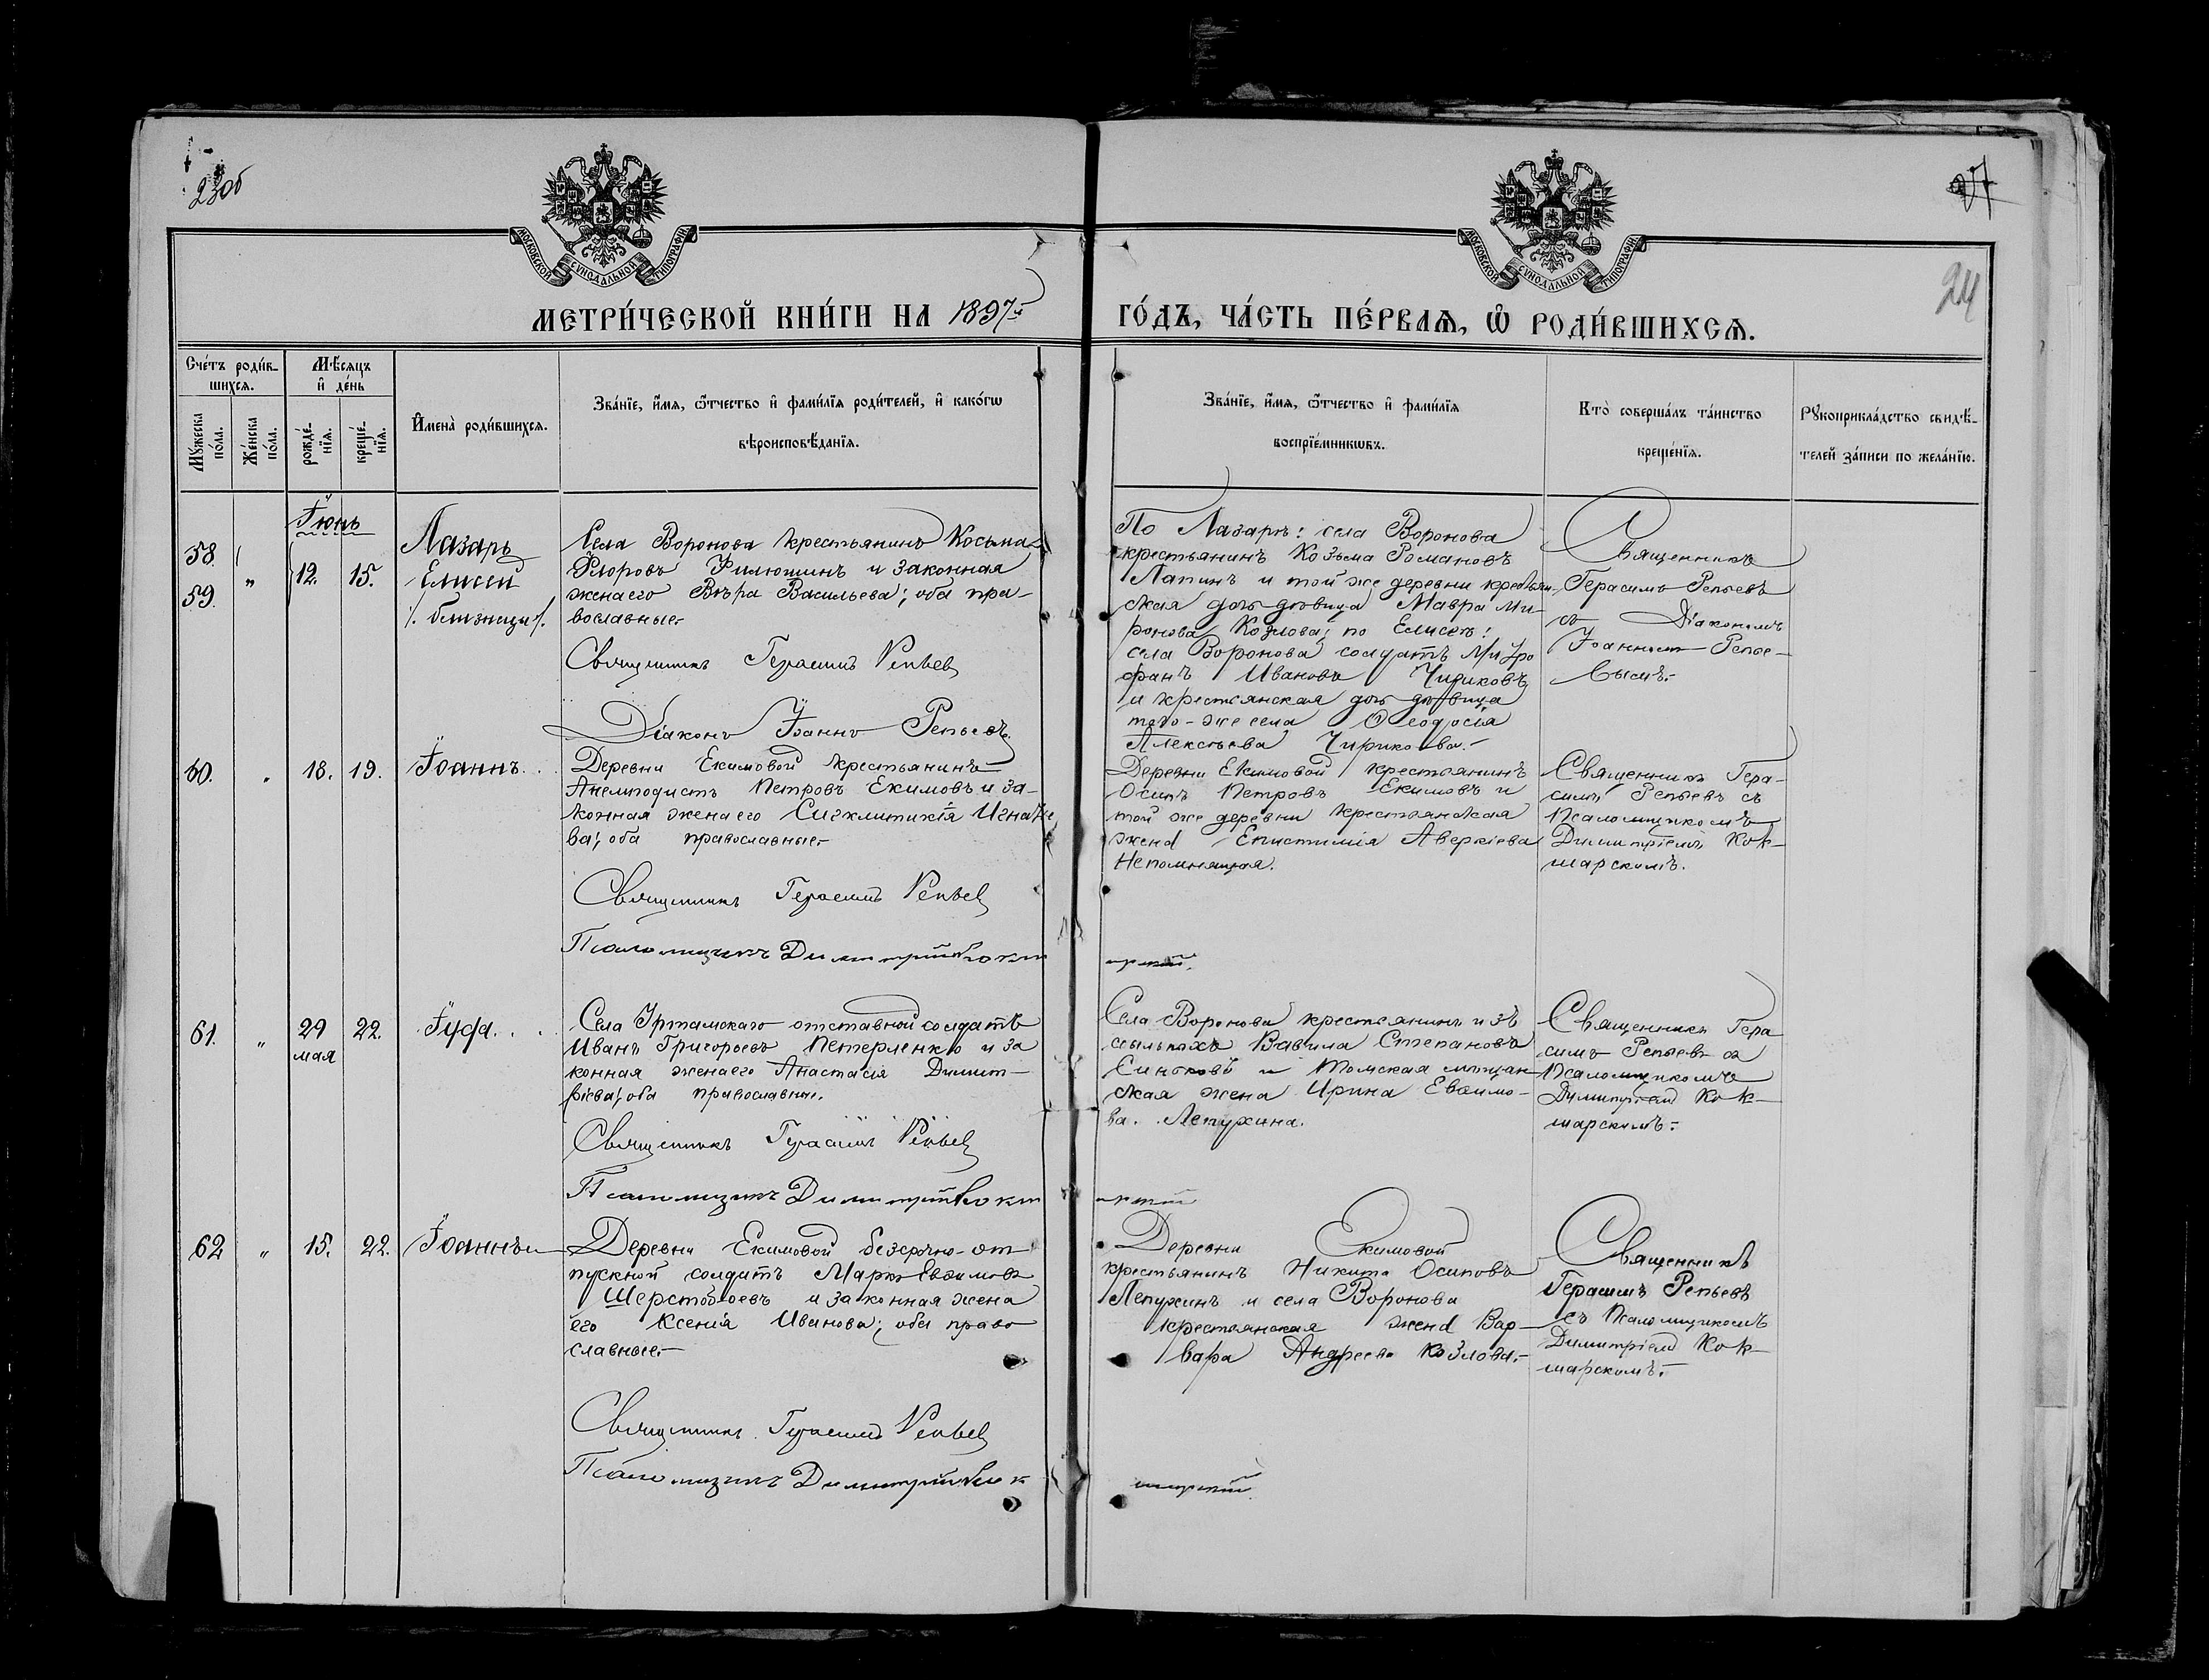 23об
27
24
МОСКОВСКОЙ СѴНОДАЛЬНОЙ ТИПОГРАФІИ
МОСКОВСКОЙ СѴНОДАЛЬНОЙ ТИПОГРАФІИ
МЕТРИ́ЧЕСКОЙ КНИ́ГИ НА 1897й
ГО́ДЪ, ЧА́СТЬ ПЕ́РВАѦ, Ѽ РОДИ́ВШИХСѦ.
Сче́тъ роди́в-
шихсѧ.
Мꙋжеска
по́ла.
Же́нска
по́ла.
Мѣ́сѧцъ
и҆ де́нь
рожде́-
нїѧ.
креще́-
нїѧ.
И҆мена̀ роди́вшихсѧ.
Зва́нїе, и҆́мѧ, ѻ҆́тчество и҆ фами́лїѧ роди́телей, и҆ како́гѡ
вѣроисповѣ́данїѧ.
Зва́нїе, и҆́мѧ, ѻ҆́тчество и҆ фами́лїѧ
воспрїе́мникѡвъ.
Кто̀ соверша́лъ та́инство
креще́нїѧ.
Рꙋкоприкла́дство свидѣ́-
телей за́писи по жела́нїю.
Іюнь
58.
59. „ 12. 15.
Лазарь
Елисей
/. близнецы /.
Села Воронова крестьянинъ Косьма
Флоровъ Филюшинъ и законная
жена его Вѣра Васильева; оба пра-
вославные.-
Священникъ Герасимъ Репьев
Діаконъ Іоаннъ Репьевъ.
По Лазарѣ: села Воронова
крестьянинъ Козьма Романовъ
Лапинъ и той же деревни крестьян-
ская дочь девица Мавра Ми-
ронова Козлова; по Елисеѣ:
села Воронова солдатъ Митро
фанъ Ивановъ Чириковъ
и крестьянская дочь девица
того-же села Ѳеодосія
Алексѣева Чирикова.-
Священникъ
Герасимъ Репьевъ
съ Діакономъ
Іоанномъ Репье-
вымъ.-
60. „ 18. 19. Іоаннъ. . .
Деревни Екимовой крестьянинъ
Анемподистъ Петровъ Екимовъ и за-
конная жена его Сигклитикія Игнатье
ва; оба православные.-
Священникъ Герасимъ Репьев
Псаломщикъ Димитрій Кокш
арскій.
Деревни Екимовой крестьянинъ
Осипъ Петровъ Екимовъ и
той же деревни крестьянская
жена Епистимія Аверкіева
Непомнящая.
Священникъ Гера-
симъ Репьевъ съ
Псаломщикомъ
Димитріемъ Кок-
шарскимъ.
61. „ 29 22. Іуда. . .
мая
Села Уртамскаго отставной солдатъ
Иванъ Григорьевъ Петерленко и за
конная жена его Анастасія Димит-
ріева; оба православны.
Священникъ Герасимъ Репьев
Псаломщикъ Димитрій Кокш
арскій
Села Воронова крестьянинъ изъ
ссыльныхъ Вавила Степановъ
и Томская мѣщан-
ская жена Ирина Евѳимо-
ва. Лепухина.
Священникъ Гера
симъ Репьевъ съ
Псаломщикомъ
Димитріемъ Кок-
шарскимъ.-
62 „ 15. 22. Іоаннъ
Деревни Екимовой безсрочно-от-
пускной солдатъ Маркъ Евѳимовъ
Шерстобоевъ и законная жена
его Ксенія Иванова; оба право
славные.-
Священникъ Герасимъ Репьев
Псаломщикъ Димитрій Кок
шарскій
Деревни Екимовой
крестьянинъ Никита Осиповъ
Лепухинъ и села Воронова
крестьянская жена Вар-
вара Андреева Козлова.-
Священникъ
Герасимъ Репьевъ
съ Псаломщикомъ
Димитріемъ Кок-
шарскимъ.-